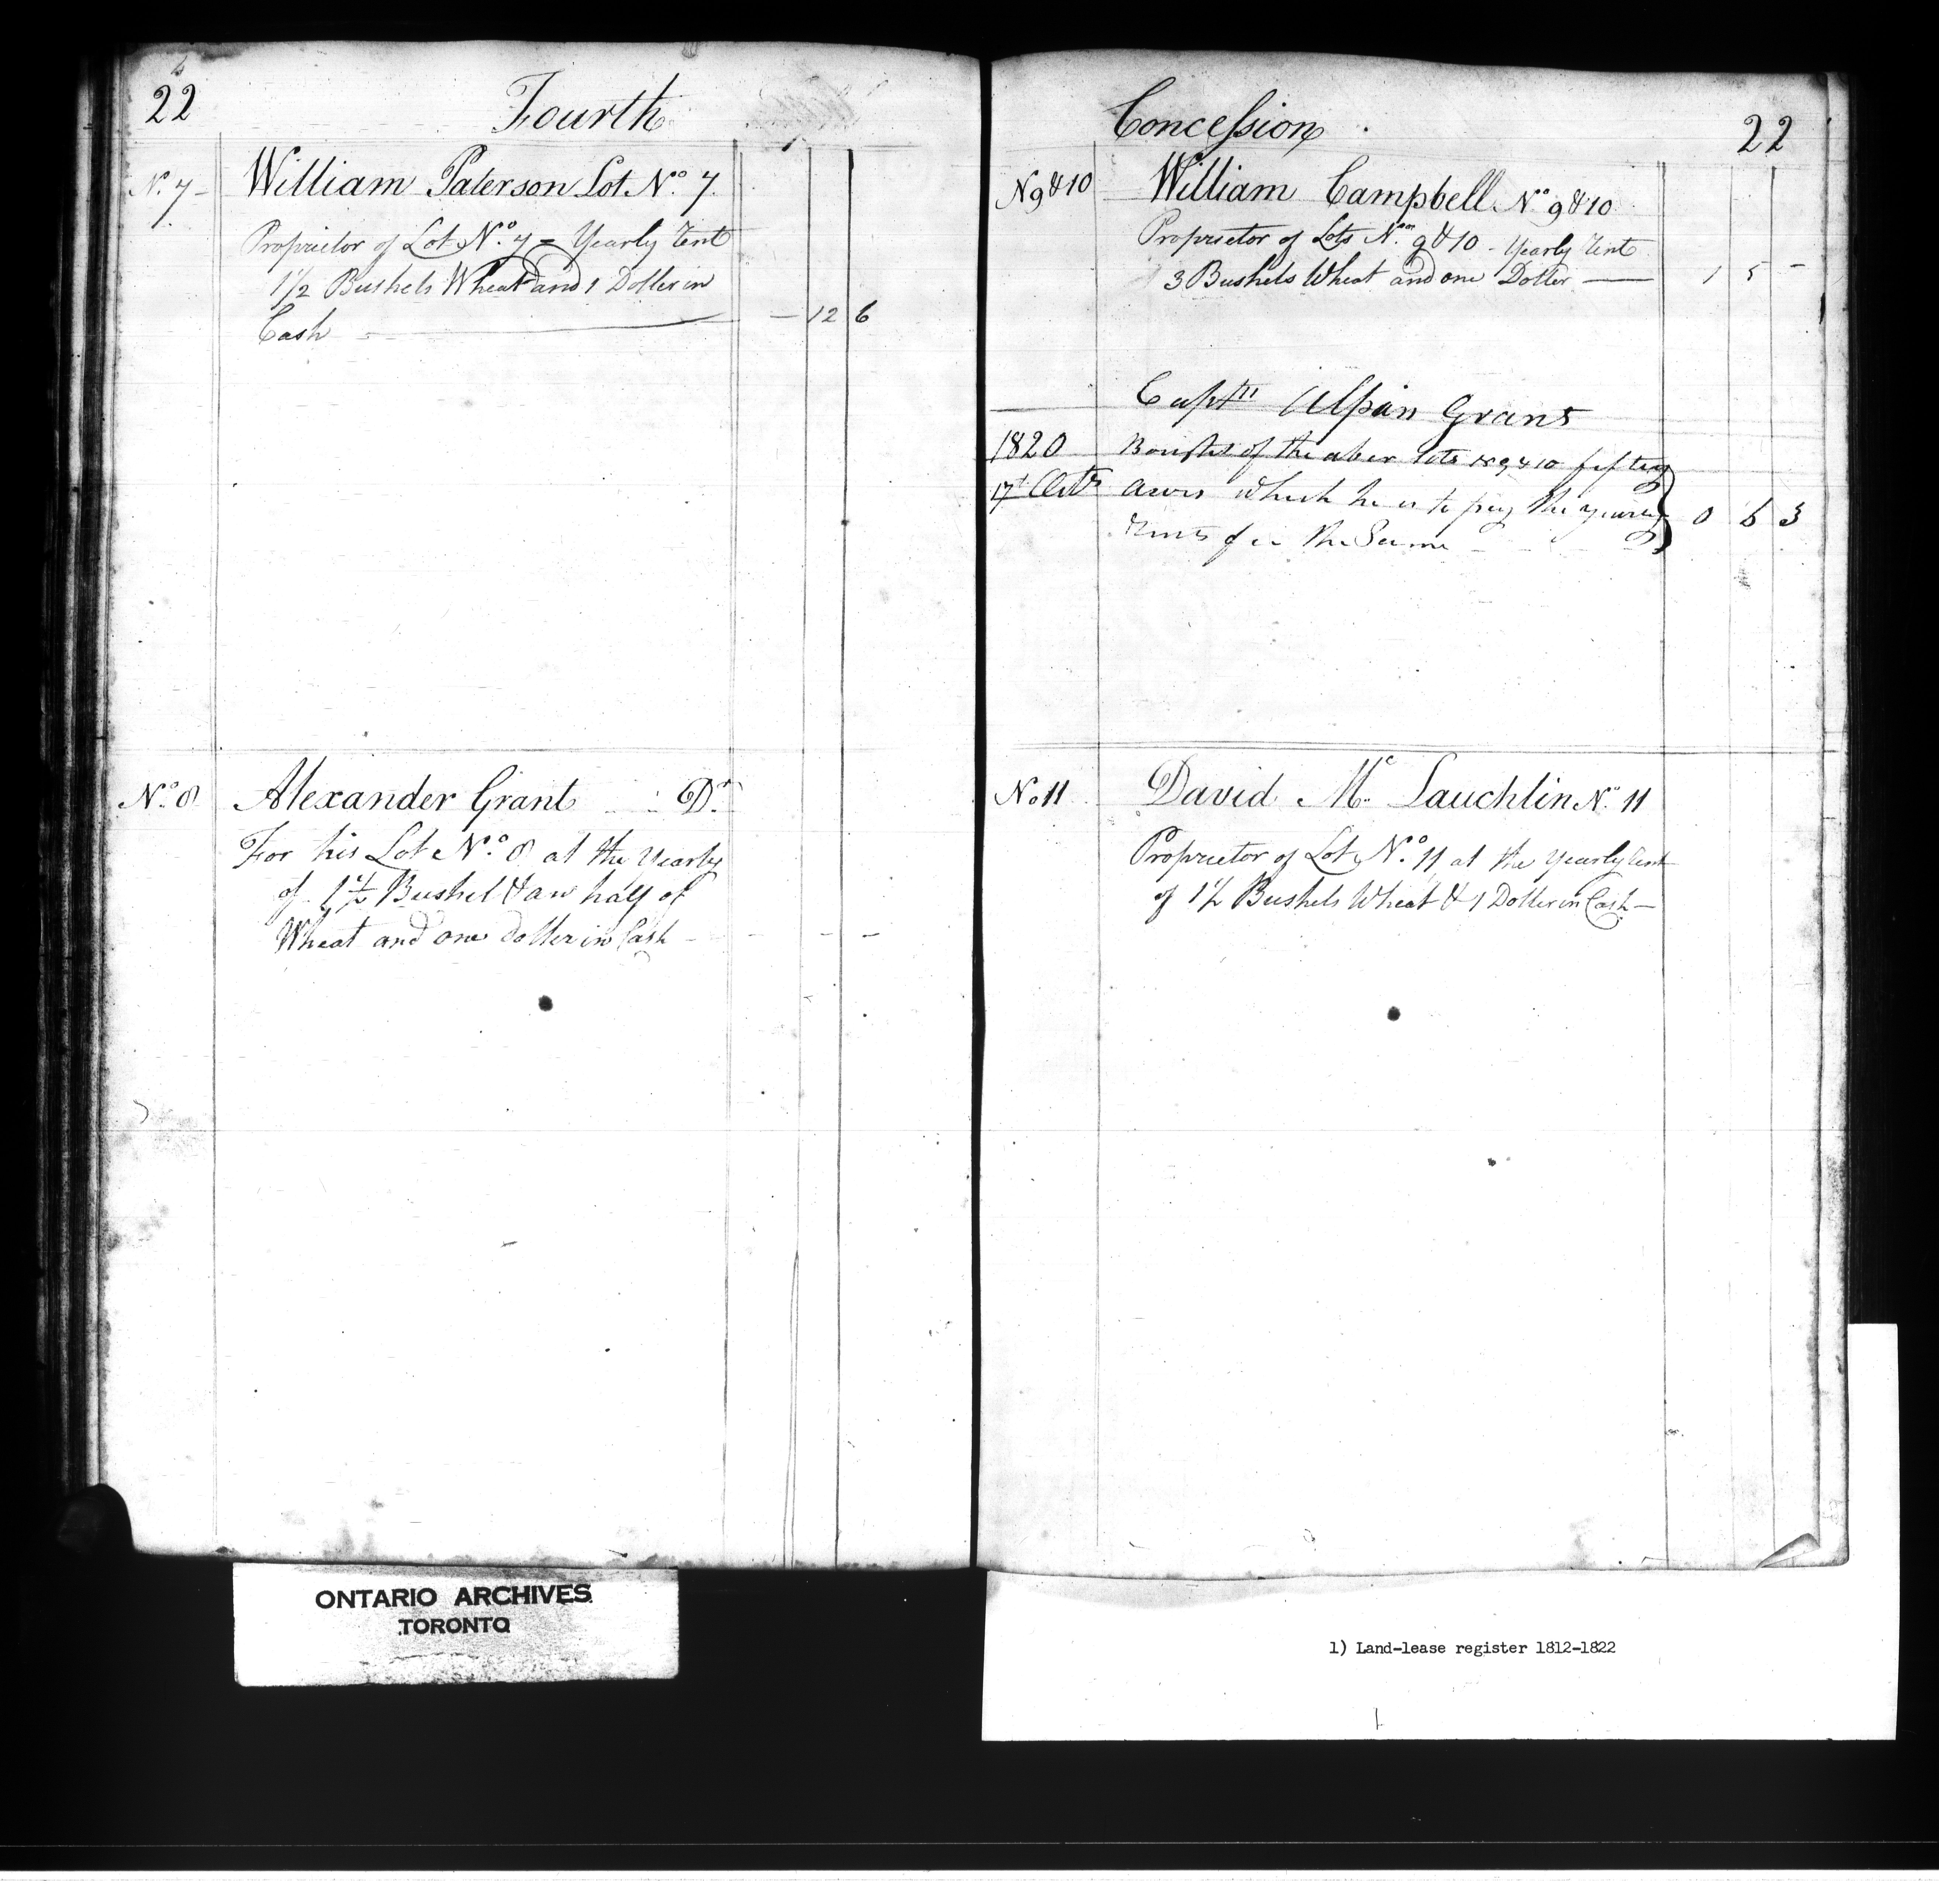 22 Fourth
N.º 7 William Paterson Lot Nº 7
Proprietor of Lot Nº 7 = Yearly Rent
1 1/2 Bushels Wheat and 1 Doller in
Cash — 12 6
Nº 8 Alexander Grant Dr
For his Lot Nº 8 at the Yearly
of 1 1/2 Bushel & aw half of
Wheat and one doller in Cash - - - -
Concession 22
N 9 & 10 William Campbell Nº 9 & 10
Proprietor of Lots Nos 9 & 10 - Yearly Rent
3 Bushels Wheat and one Doller — 1 5 -
Captn Alpin Grant
1820 Bought of the abov lots N 9 & 10 fiftey
17t Octr Acers which he is to pay the yearly 0 6 3
Rents for the Same
No 11 David Mc Lauchlin Nº 11
Proprietor of Lot Nº 11 at the Yearly Rent
of 1 1/2 Bushels Wheat & 1 Doller in Cash —
ONTARIO ARCHIVES
TORONTO
1) Land-lease register 1812-1822